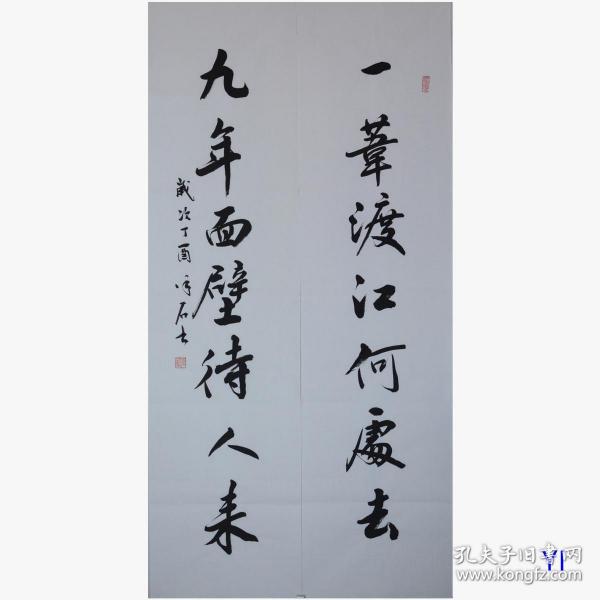 一葦渡江何處去
九年面壁待人来
歲次丁酉
石书
孔夫子旧书网
www.kongfz.com
YI